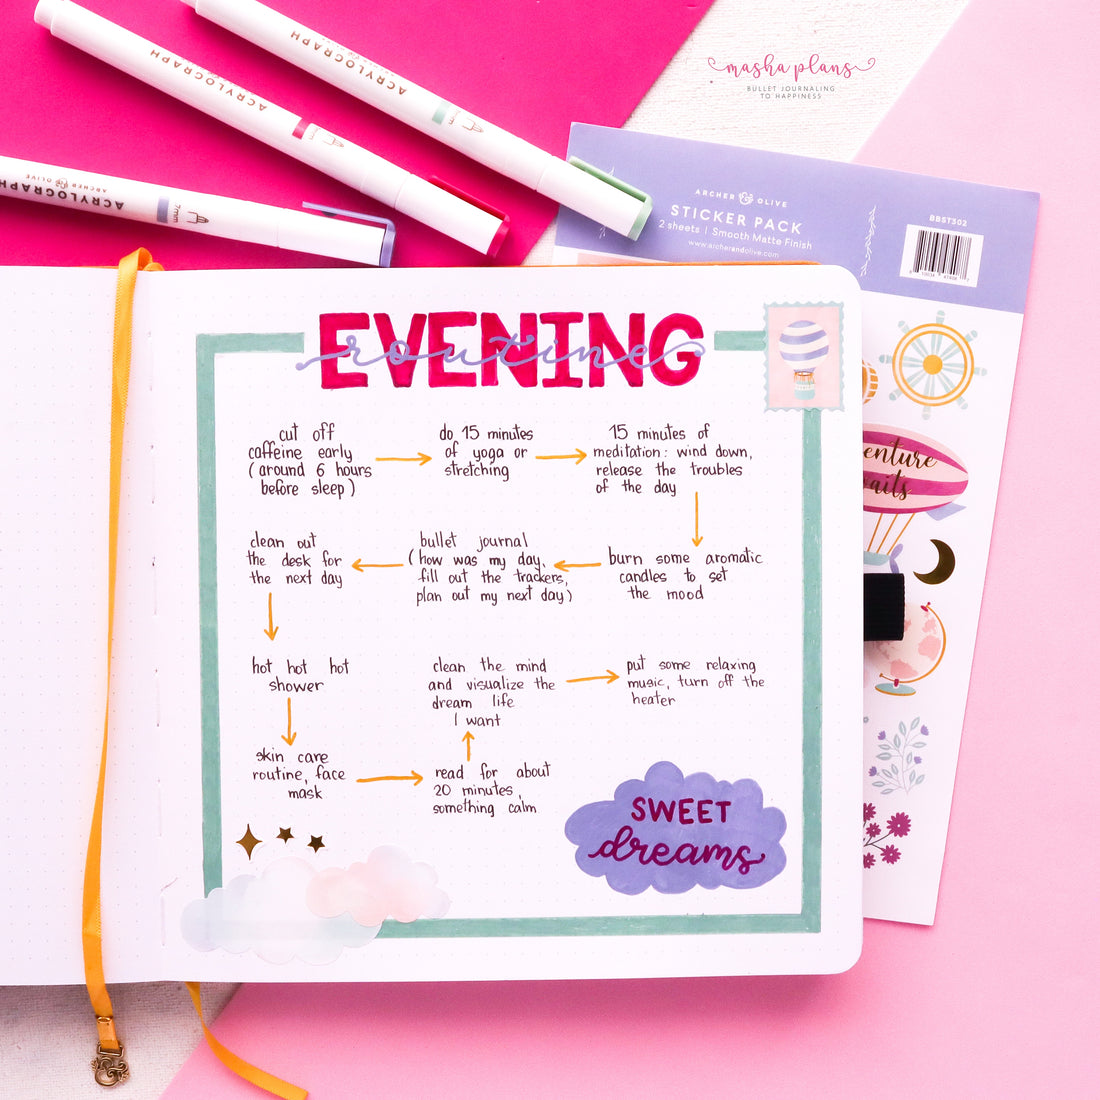 masha plans
BULLET JOURNALING
TO HAPPINESS
ACRYLOGRAPH
ACRYLOGRAPH
ARCHER & OLIVE
ACRYLOGRAPH
ARCHER & OLIVE
.7mm
ARCHER & OLIVE
STICKER PACK
2 sheets | Smooth Matte Finish
www.archerandolive.com
BBST302
EVENING
routine
cut off
caffeine early
(around 6 hours
before sleep)
do 15 minutes
of yoga or
stretching
15 minutes of
meditation: wind down,
release the troubles
of the day
burn some aromatic
candles to set
the mood
bullet journal
(how was my day,
fill out the trackers,
plan out my next day)
clean out
the desk for
the next day
hot hot hot
shower
skin care
routine, face
mask
read for about
20 minutes,
something calm
clean the mind
and visualize the
dream life
I want
put some relaxing
music, turn off the
heater
SWEET
dreams
enture
aits